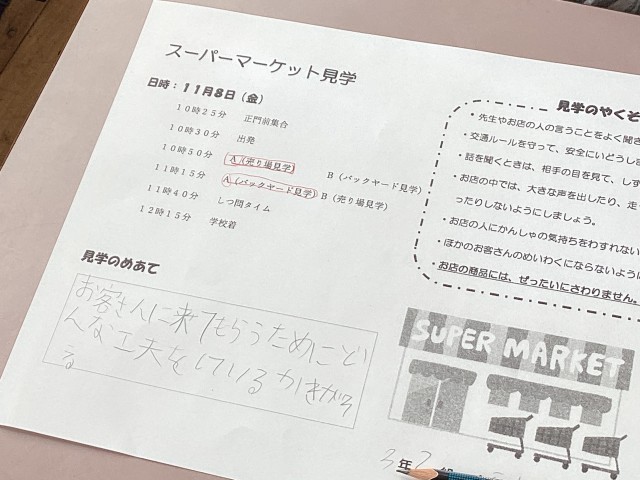 スーパーマーケット見学
日時：１１月８日（金）
１０時２５分 正門前集合
１０時３０分 出発
１０時５０分 A（売り場見学） B（バックヤード見学）
１１時１５分 A（バックヤード見学） B（売り場見学）
１１時４０分 しつ問タイム
１２時１５分 学校着
見学のめあて
お客さんに来てもらうためにどい
んな工夫をしているかきがそ
る
見学のやくそ
・先生やお店の人の言うことをよく聞き
・交通ルールを守って、安全にいどうしま
・話を聞くときは、相手の目を見て、しず
・お店の中では、大きな声を出したり、走
ったりしないようにしましょう。
・お店の人にかんしゃの気持ちをわすれない
・ほかのお客さんのめいわくにならないように
・お店の商品には、ぜったいにさわりません。
SUPER MARKET
3年2組